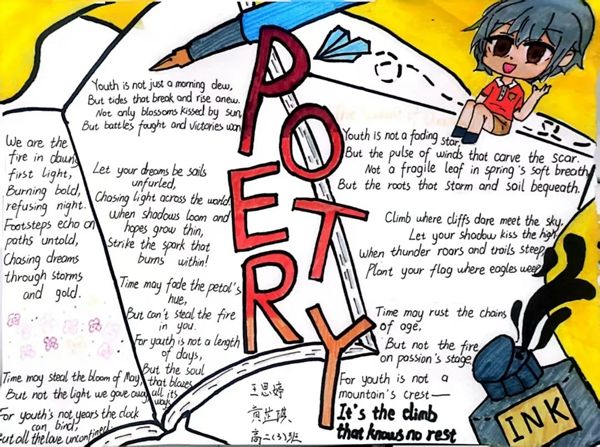 POETRY
Youth is not just a morning dew,
But tides that break and rise anew.
Not only blossoms kissed by sun,
But battles fought and victories won
We are the
fire in dawn's
first light,
Burning bold,
refusing night.
Footsteps echo on
paths untold,
Chasing dreams
through storms
and gold.
Let your dreams be sails
unfurled,
Chasing light across the world
When shadows loom and
hopes grow thin,
Strike the spark that
burns within!
Time may fade the petal's
hue,
But can't steal the fire
in you.
For youth is not a length
of days,
But the soul
that blazes
all its
ways.
Time may steal the bloom of May,
But not the light we gave away,
For youth's not years the clock
can bind,
But all the love unconfined.
Youth is not a fading star,
But the pulse of winds that carve the scar.
Not a fragile leaf in spring's soft breath
But the roots that storm and soil bequeath.
Climb where cliffs dare meet the sky.
Let your shadow kiss the high,
When thunder roars and trails steep
Plant your flag where eagles weep
Time may rust the chains
of age,
But not the fire
on passion's stage
For youth is not a
mountain's crest—
It's the climb
that knows no rest
王思婷
高二(3)班
INK